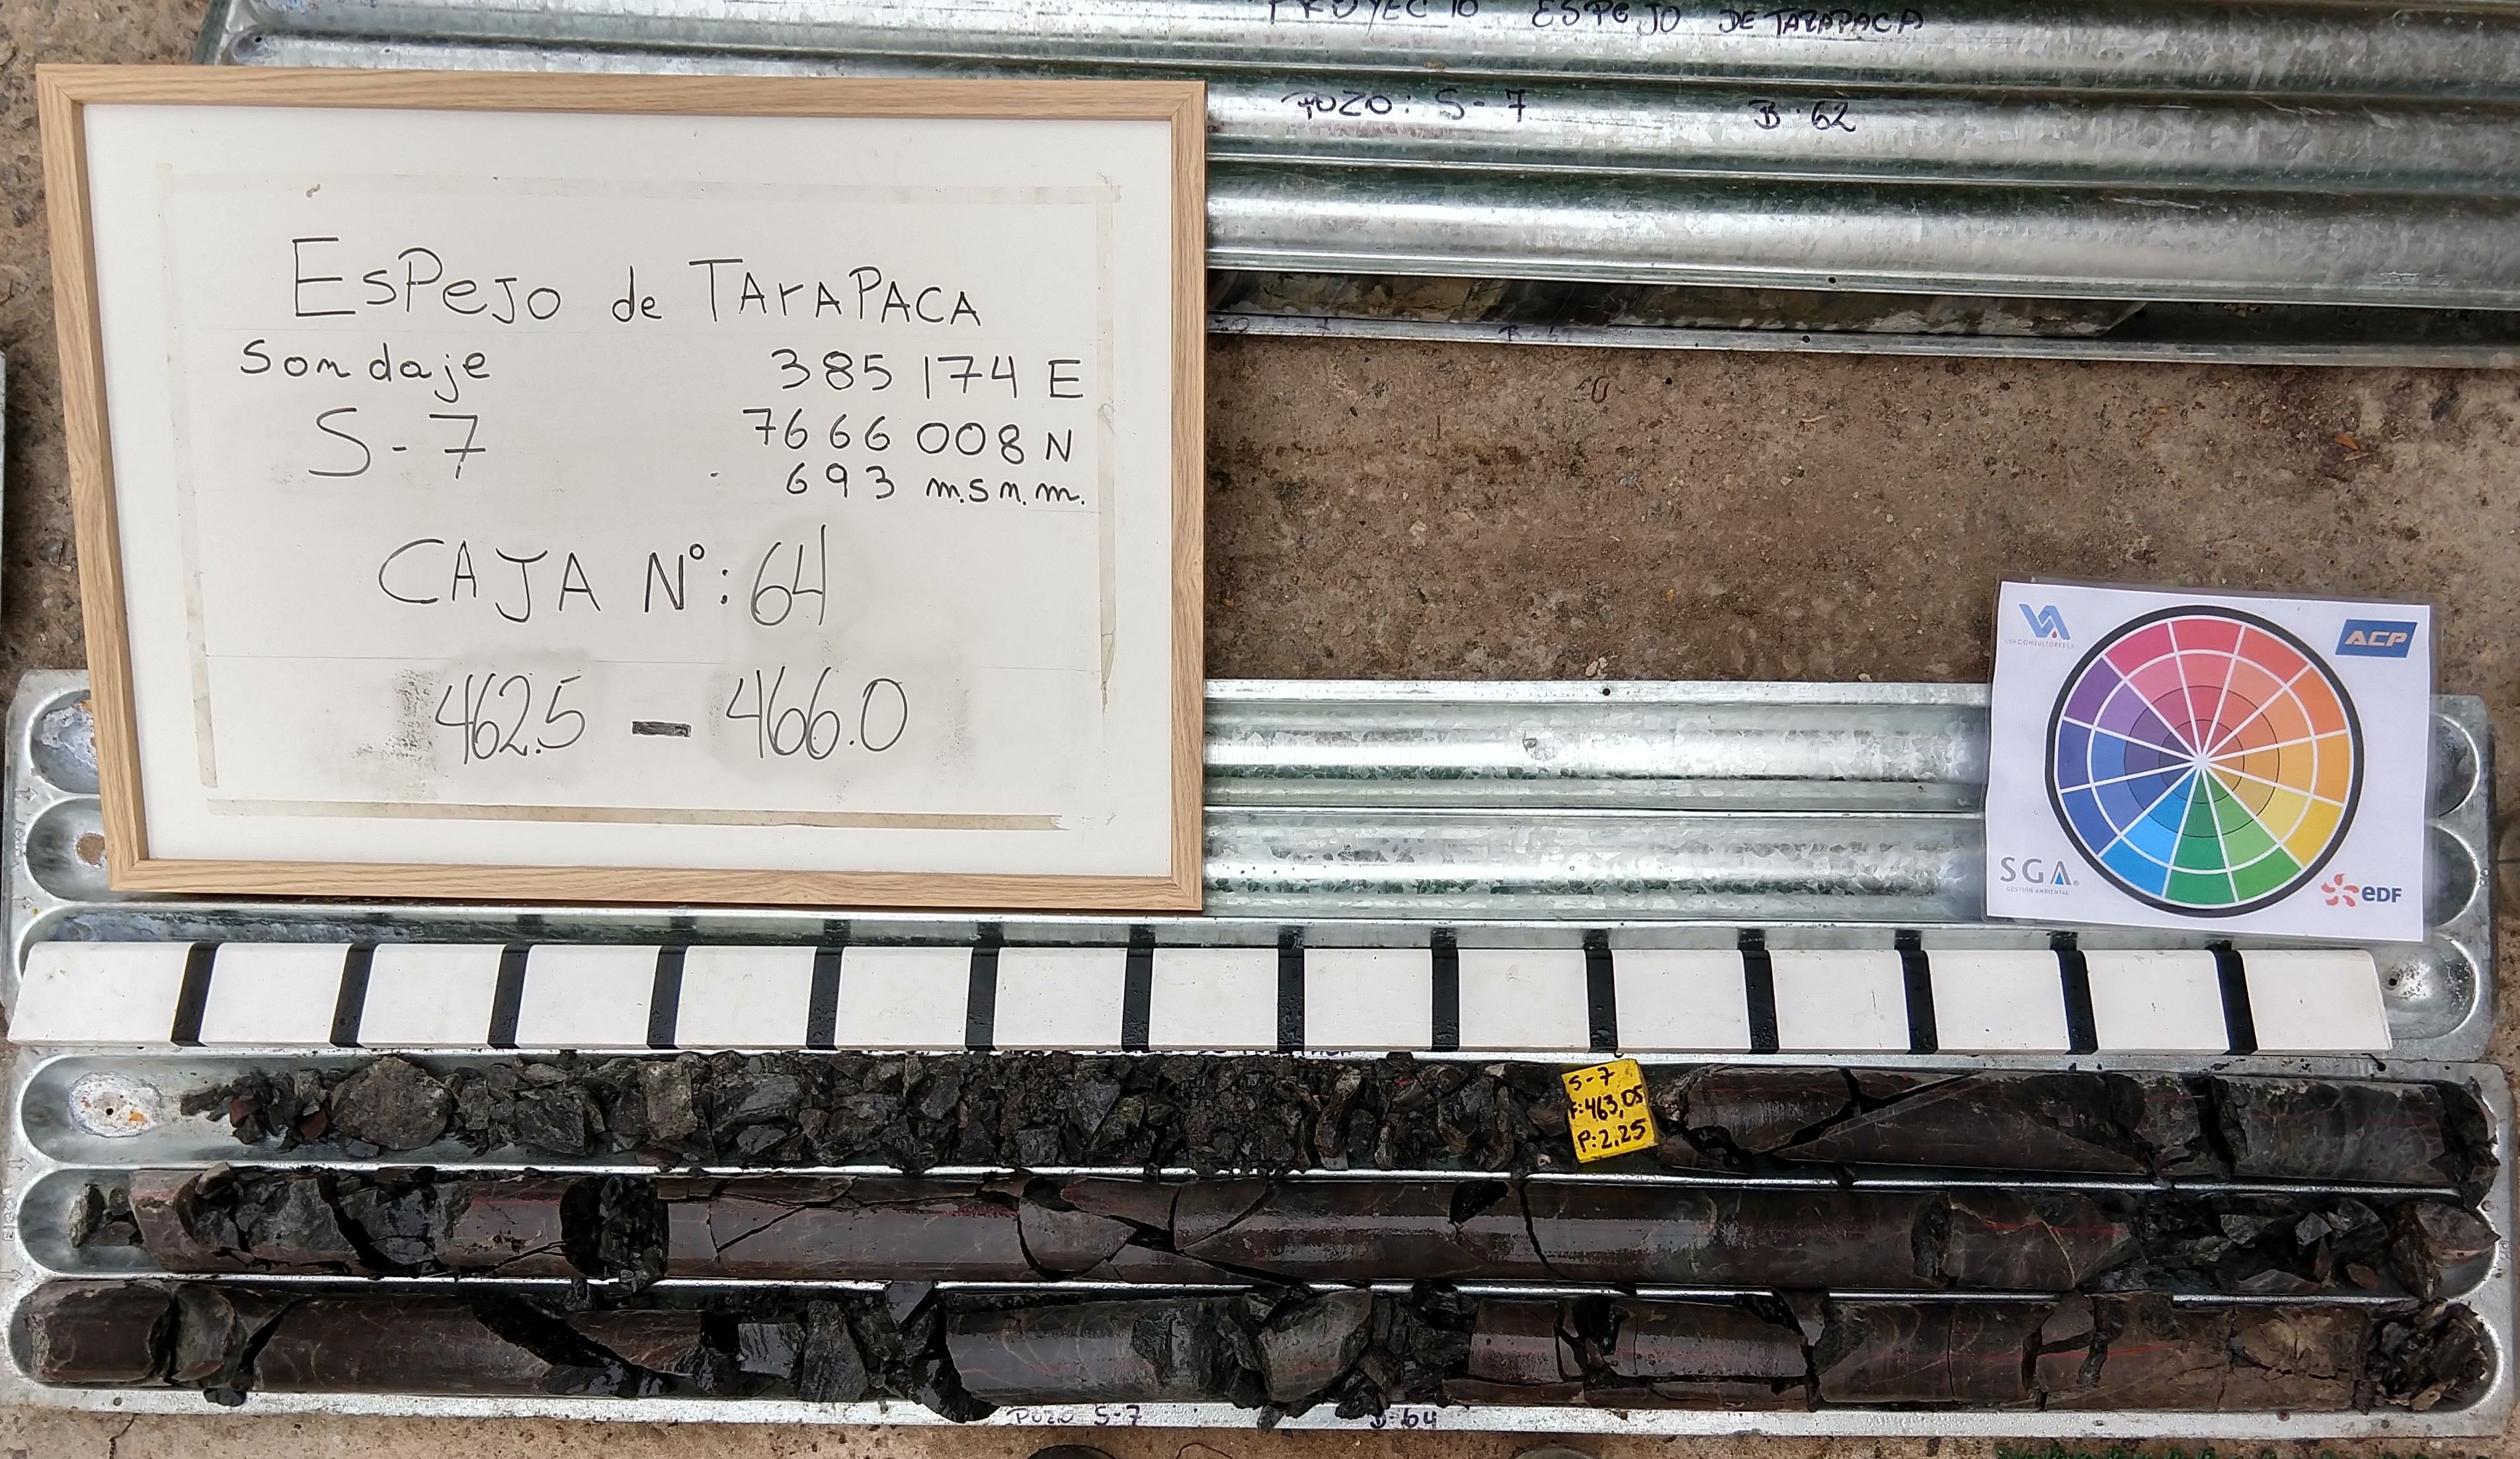 PROYECTO ESPEJO DE TARAPACA
POZO: S-7 B:62
ESPEJO de TARAPACA
Sondaje 385 174 E
S-7 7666 008 N
693 m.s.n.m.
CAJA N°: 64
462.5 - 466.0
ACP
SGA
GESTIÓN AMBIENTAL
eDF
S-7
F:463,05
P:2,25
POZO S-7 B:64